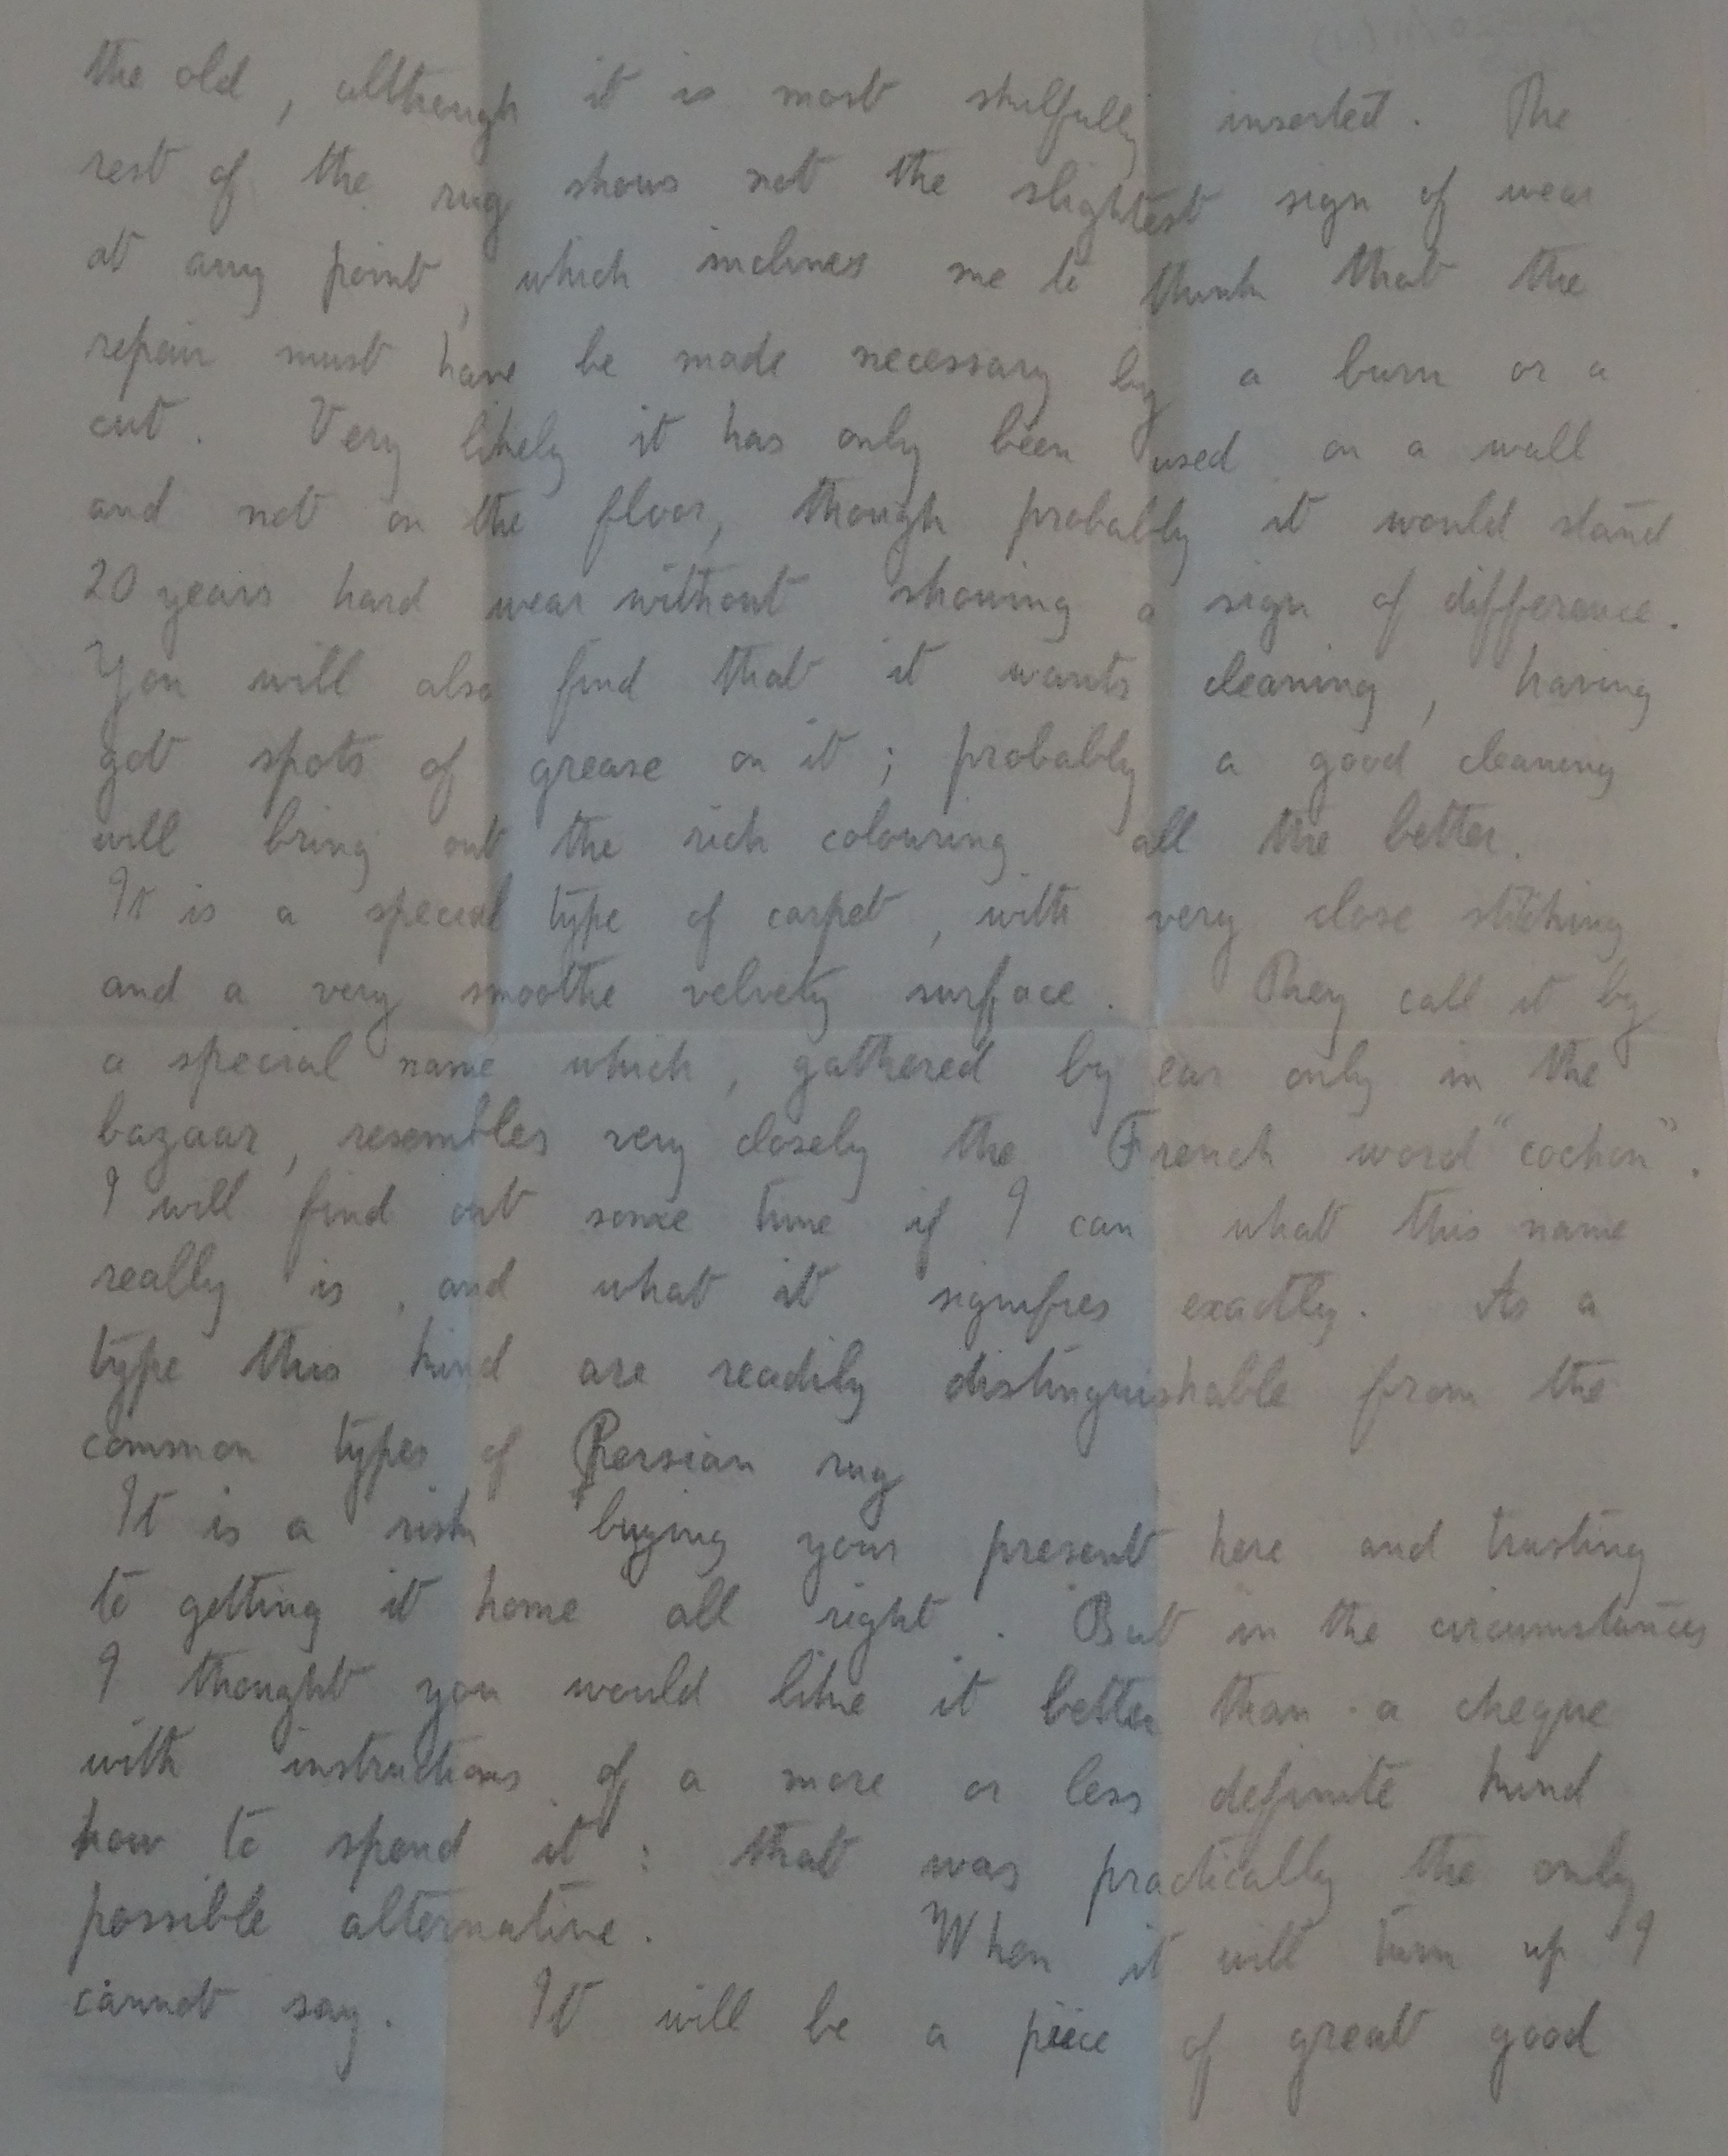 the old, although it is most skilfully inserted. The
rest of the rug shows not the slightest sign of wear
at any point, which inclines me to think that the
repair must have be made necessary by a burn or a
cut. Very likely it has only been used on a wall
and not on the floor, though probably it would stand
20 years hard wear without showing a sign of difference.
You will also find that it wants cleaning, having
got spots of grease on it; probably a good cleaning
will bring out the rich colouring all the better.
It is a special type of carpet, with very close stitching
and a very smoothe velvety surface. They call it by
a special name which, gathered by ear only in the
bazaar, resembles very closely the French word "cochon".
I will find out some time if I can what this name
really is, and what it signifies exactly. As a
type this kind are readily distinguishable from the
common types of Persian rug
It is a risk buying your present here and trusting
to getting it home all right. But in the circumstances
I thought you would like it better than a cheque
with instructions of a more or less definite kind
how to spend it: that was practically the only
possible alternative. When it will turn up I
cannot say. It will be a piece of great good